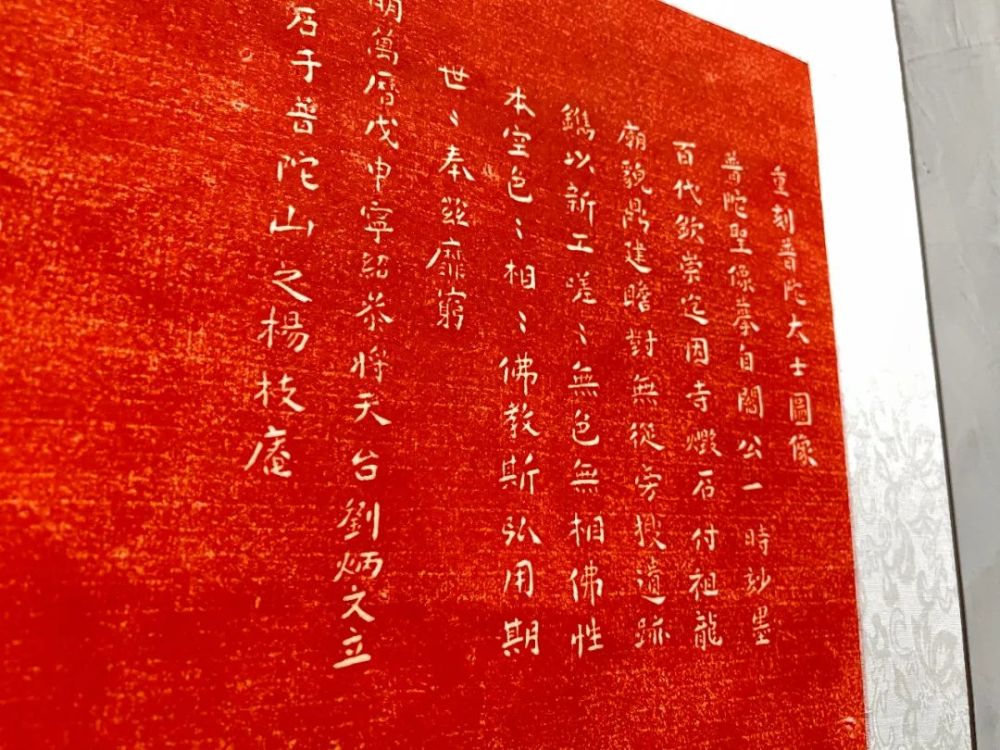 重刻普陀大士圖像
普陀聖像摹自閻公一時玅墨
百代欽崇迄因寺燬石付祖龍
廟貌鼎建瞻對無從旁搜遺跡
鐫以新工嗟〻無色無相佛性
本空色〻相〻佛教斯弘用期
世〻奉茲靡窮
萬曆戊申寧紹叅將天台劉炳文立
石于普陀山之楊枝庵